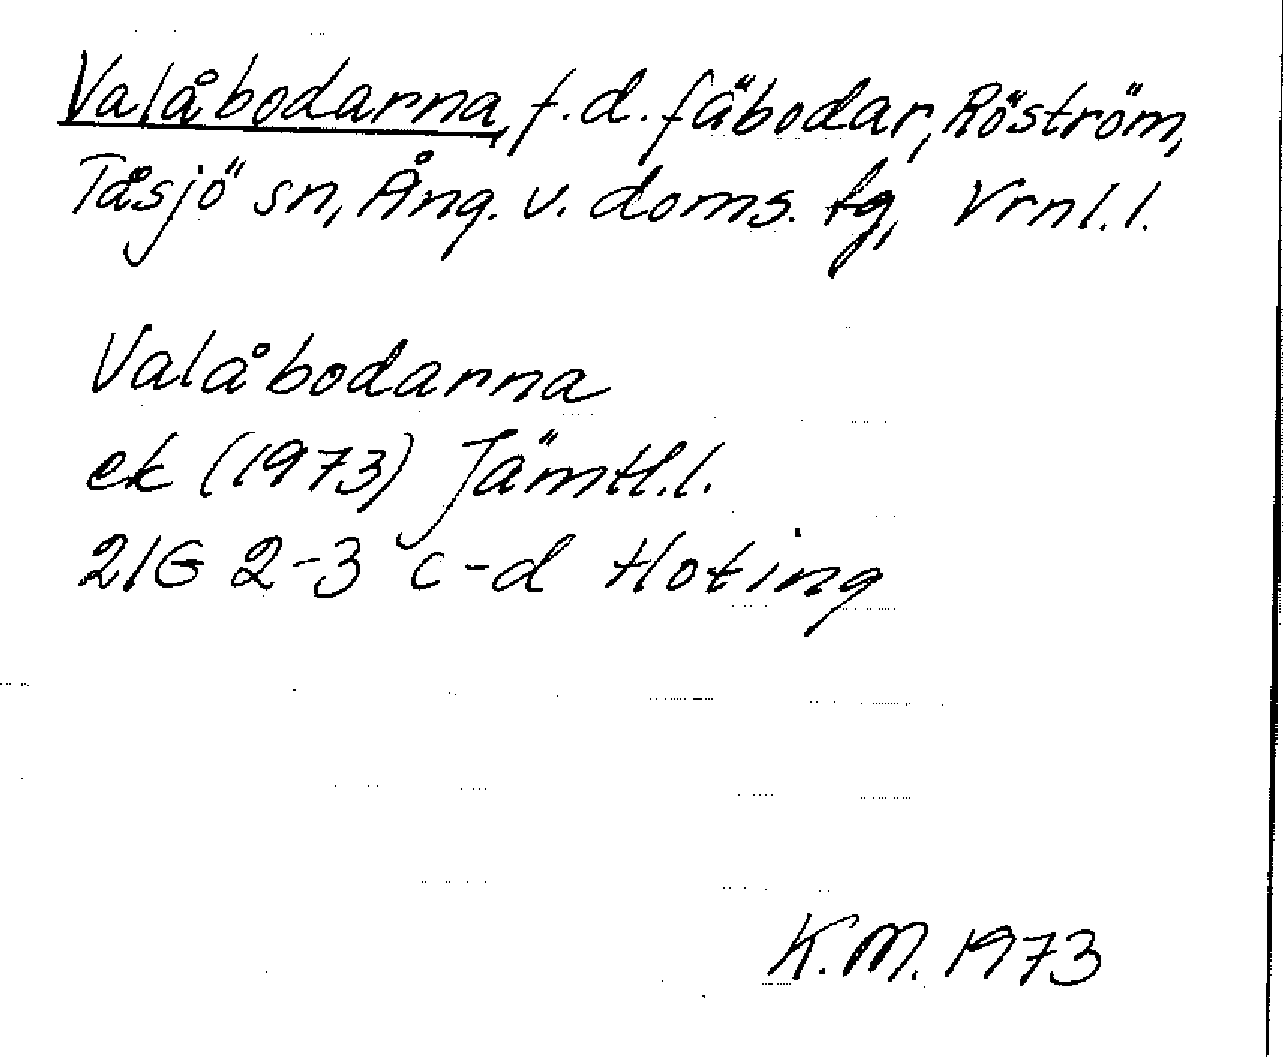 Valåbodarna, f.d. fäbodar, Röström,
Tåsjö sn, Ång. v. doms. tg, Vrnl.l.
Valåbodarna
ek (1973) Jämtl.l.
21G 2-3 c-d Hoting
K.M. 1973